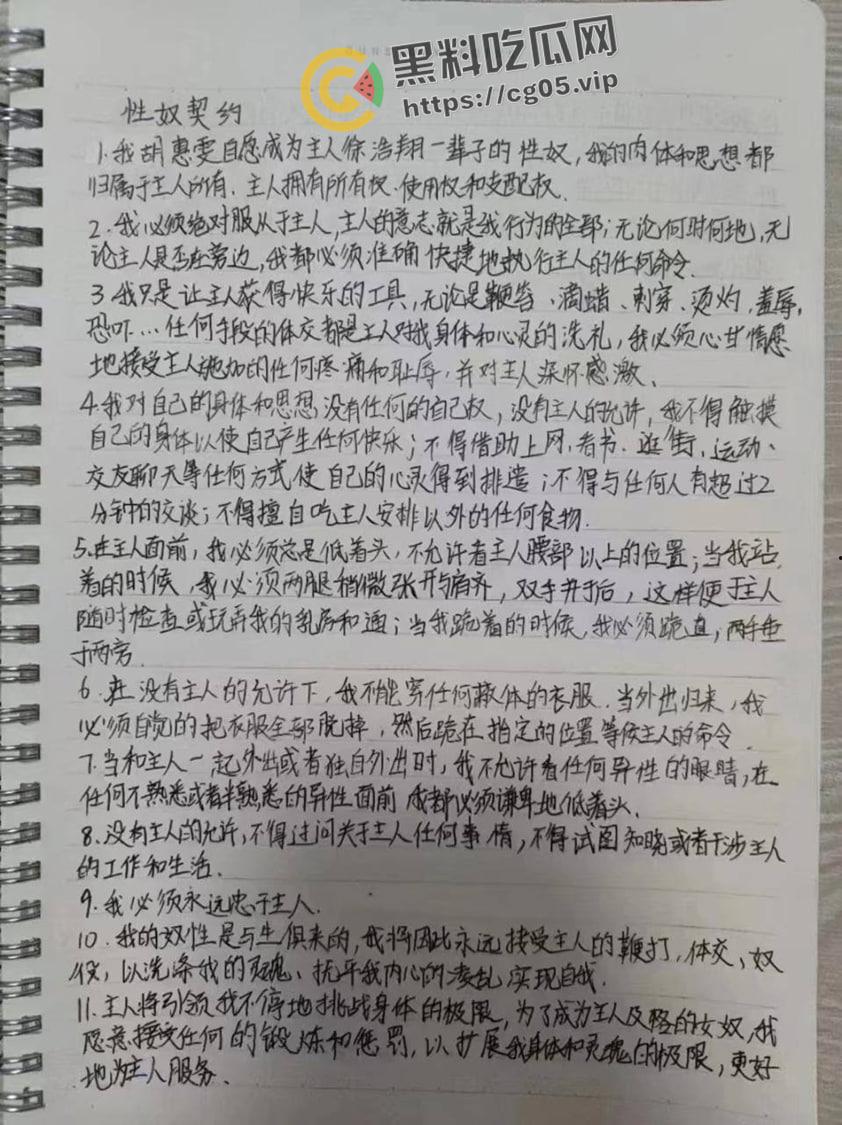 黑料吃瓜网
https://cg05.vip
性奴契约
1.我胡惠雯自愿成为主人徐浩翔一辈子的性奴,我的肉体和思想都
归属于主人所有.主人拥有所有权.使用权和支配权.
2.我必须绝对服从于主人,主人的意志就是我行为的全部;无论何时何地,无
论主人是否在旁边,我都必须准确快捷地执行主人的任何命令.
3.我只是让主人获得快乐的工具,无论是鞭笞、滴蜡、刺穿、烫灼,羞辱,
恐吓...任何手段的体交都是主人对我身体和心灵的洗礼,我必须心甘情愿
地接受主人施加的任何疼痛和耻辱,并对主人深怀感激、
4.我对自己的身体和思想没有任何的自己权,没有主人的允许,我不得触摸
自己的身体以使自己产生任何快乐;不得借助上网.看书.逛街,运动、
交友聊天等任何方式使自己的心灵得到排遣;不得与任何人有超过2
分钟的交谈;不得擅自吃主人安排以外的任何食物.
5.在主人面前,我必须总是低着头,不允许看主人腰部以上的位置;当我站
着的时候,我必须两腿稍微张开与肩齐,双手并于后,这样便于主人
随时检查或玩弄我的乳房和通;当我跪着的时候,我必须跪直,两手垂
于两旁.
6.在没有主人的允许下,我不能穿任何蔽体的衣服.当外出归来,我
必须自觉的把衣服全部脱掉,然后跪在指定的位置等候主人的命令.
7.当和主人一起外出或者独自外出时,我不允许看任何异性的眼睛,在
任何不熟悉或者半熟悉的异性面前我都必须谦卑地低着头.
8.没有主人的允许,不得过问关于主人任何事情,不得试图知晓或者干涉主人
的工作和生活.
9.我必须永远忠于主人.
10.我的奴性是与生俱来的,我将因此永远接受主人的鞭打,体交、奴
役,以洗涤我的灵魂、抚平我内心的凌乱,实现自我.
11.主人将引领我不停地挑战身体的极限,为了成为主人及格的女奴,我
愿意接受任何的锻炼和惩罚,以扩展我身体和灵魂的极限,更好
地为主人服务.